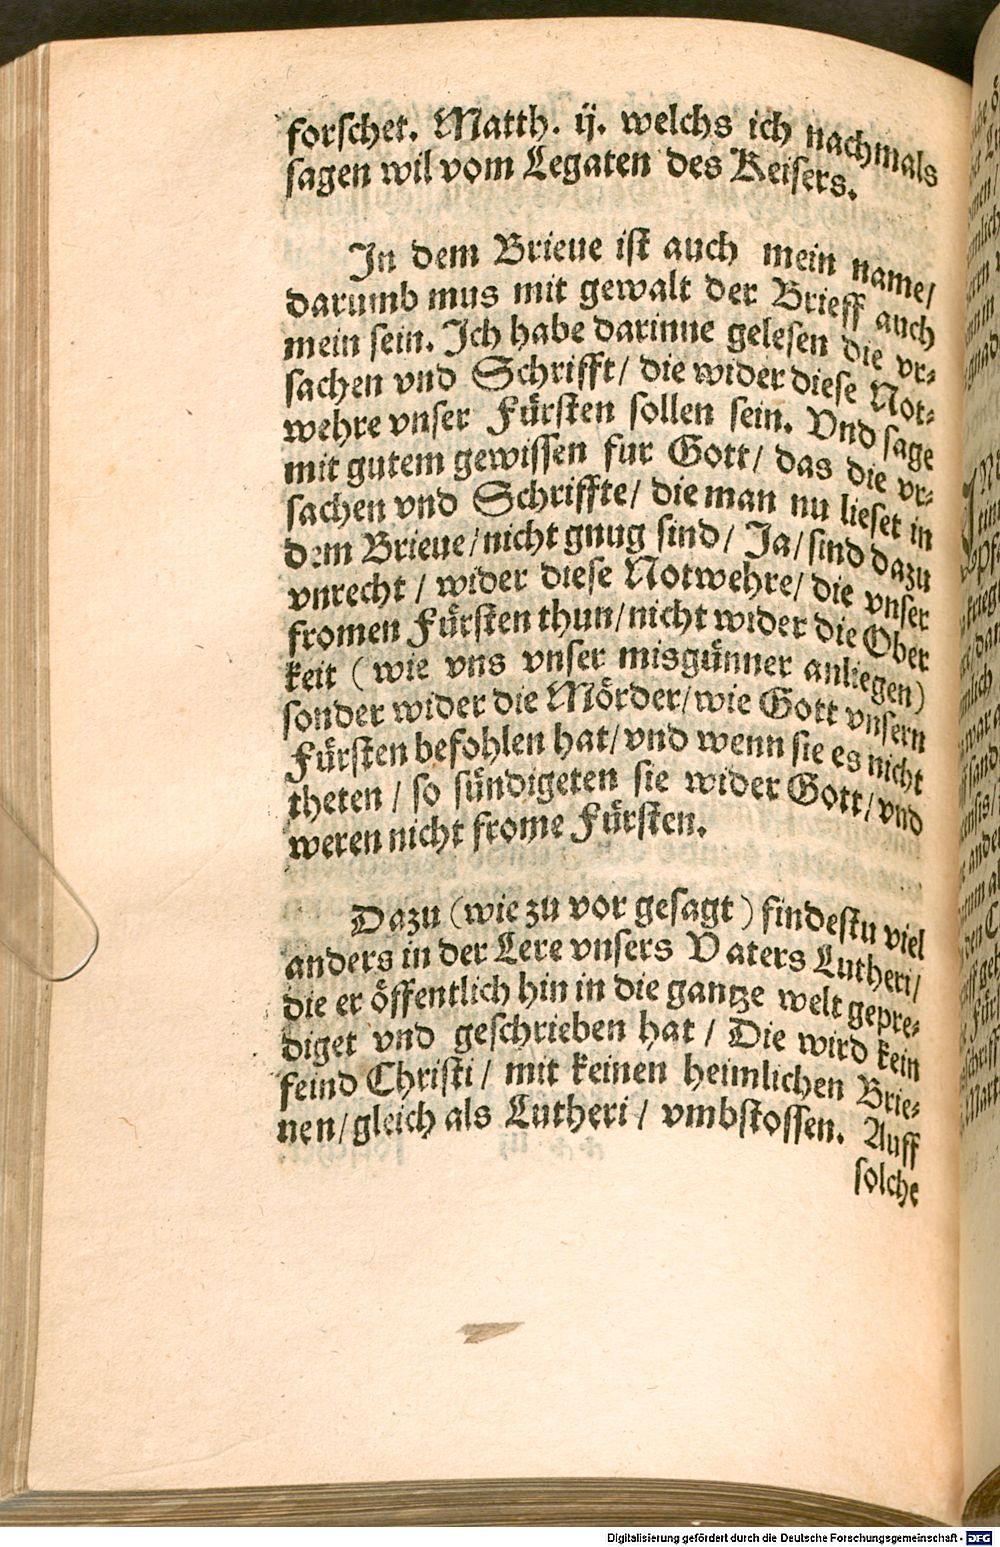 forschet. Matth. ij. welchs ich nachmals
sagen wil vom Legaten des Keisers.
In dem Brieue ist auch mein name/
darumb mus mit gewalt der Brieff auch
mein sein. Ich habe darinne gelesen die vr⸗
sachen vnd Schrifft/ die wider diese Not⸗
wehre vnser Fürsten sollen sein. Vnd sage
mit gutem gewissen fur Gott/ das die vr⸗
sachen vnd Schriffte/ die man nu lieset in
dem Brieue/nicht gnug sind/ Ja/sind dazu
vnrecht/ wider diese Notwehre/ die vnser
fromen Fürsten thun/nicht wider die Ober
keit (wie vns vnser misgünner anliegen)
sonder wider die Mörder/wie Gott vnsern
Fürsten befohlen hat/vnd wenn sie es nicht
theten/ so sündigeten sie wider Gott/vnd
weren nicht frome Fürsten.
Dazu (wie zu vor gesagt) findestu viel
anders in der Lere vnsers Vaters Lutheri/
die er öffentlich hin in die gantze welt gepre⸗
diget vnd geschrieben hat/ Die wird kein
feind Christi/ mit keinen heimlichen Brie⸗
nen/gleich als Lutheri/ vmbstossen. Auff
solche
Digitalisierung gefördert durch die Deutsche Forschungsgemeinschaft - DFG